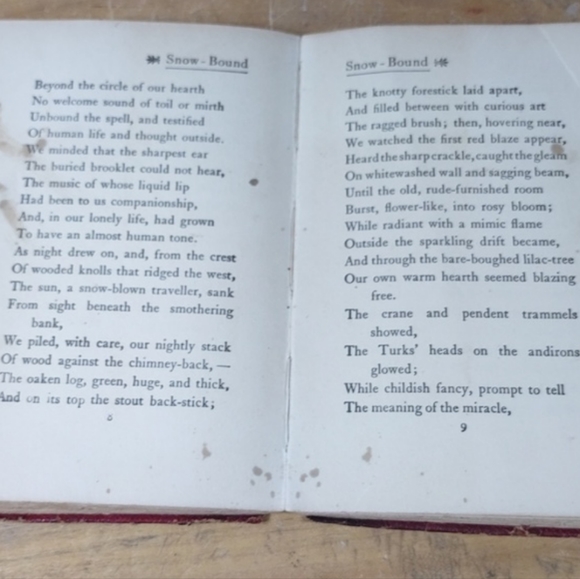 Snow-Bound
Beyond the circle of our hearth
No welcome sound of toil or mirth
Unbound the spell, and testified
Of human life and thought outside.
We minded that the sharpest ear
The buried brooklet could not hear,
The music of whose liquid lip
Had been to us companionship,
And, in our lonely life, had grown
To have an almost human tone.
As night drew on, and, from the crest
Of wooded knolls that ridged the west,
The sun, a snow-blown traveller, sank
From sight beneath the smothering
bank,
We piled, with care, our nightly stack
Of wood against the chimney-back, —
The oaken log, green, huge, and thick,
And on its top the stout back-stick;
8
Snow-Bound
The knotty forestick laid apart,
And filled between with curious art
The ragged brush; then, hovering near,
We watched the first red blaze appear,
Heard the sharp crackle, caught the gleam
On whitewashed wall and sagging beam,
Until the old, rude-furnished room
Burst, flower-like, into rosy bloom;
While radiant with a mimic flame
Outside the sparkling drift became,
And through the bare-boughed lilac-tree
Our own warm hearth seemed blazing
free.
The crane and pendent trammels
showed,
The Turks' heads on the andirons
glowed;
While childish fancy, prompt to tell
The meaning of the miracle,
9